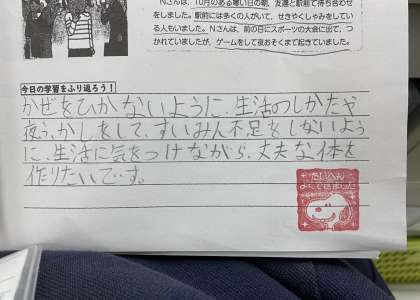 Nさんは、10月のある寒い日の朝、友達と駅前で待ち合わせ
をしました。駅前には多くの人がいて、せきやくしゃみをしてい
る人もいました。Nさんは、前の日にスポーツの大会に出て、つ
かれていましたが、ゲームをして夜おそくまで起きていました。
今日の学習をふり返ろう！
かぜをひかないように、生活のしかたや
夜ふかしをして、すいみん不足をしないよう
に、生活に気をつけながら、丈夫な体を
作りたいです。
たいへん
よくできました